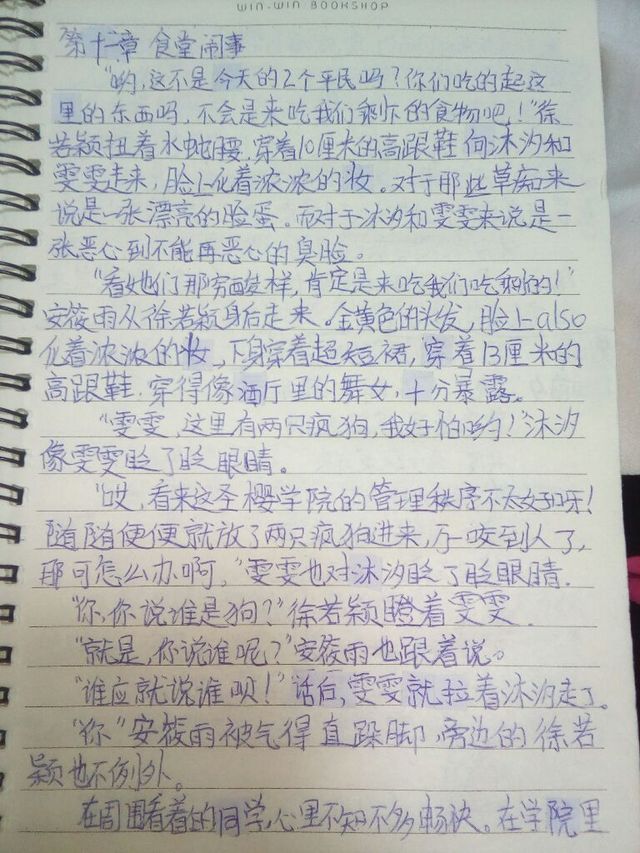 WIN-WIN BOOKSHOP
第十一章 食堂闹事
“哟,这不是今天的2个平民吗?你们吃的起这
里的东西吗,不会是来吃我们剩下的食物吧!”徐
若颖扭着水蛇腰,穿着10厘米的高跟鞋向沐汐和
雯雯走来,脸上化着浓浓的妆。对于那些草痴来
说是一张漂亮的脸蛋。而对于沐汐和雯雯来说是一
张恶心到不能再恶心的臭脸。
“看她们那穷酸样,肯定是来吃我们吃剩的!”
安筱雨从徐若颖身后走来。金黄色的头发,脸上also
化着浓浓的妆,下身穿着超短裙,穿着13厘米的
高跟鞋,穿得像酒厅里的舞女,十分暴露。
“雯雯,这里有两只疯狗,我好怕哟!”沐汐
像雯雯眨了眨眼睛。
“哎,看来这圣樱学院的管理秩序不太好呀!
随随便便就放了两只疯狗进来,万一咬到人了,
那可怎么办啊,”雯雯也对沐汐眨了眨眼睛.
“你,你说谁是狗?”徐若颖瞪着雯雯.
“就是,你说谁呢?”安筱雨也跟着说。
“谁应就说谁呗!”话后,雯雯就拉着沐汐走了。
“你”安筱雨被气得直跺脚,旁边的徐若
颖也不例外。
在周围看着的同学,心里不知不多畅快。在学院里